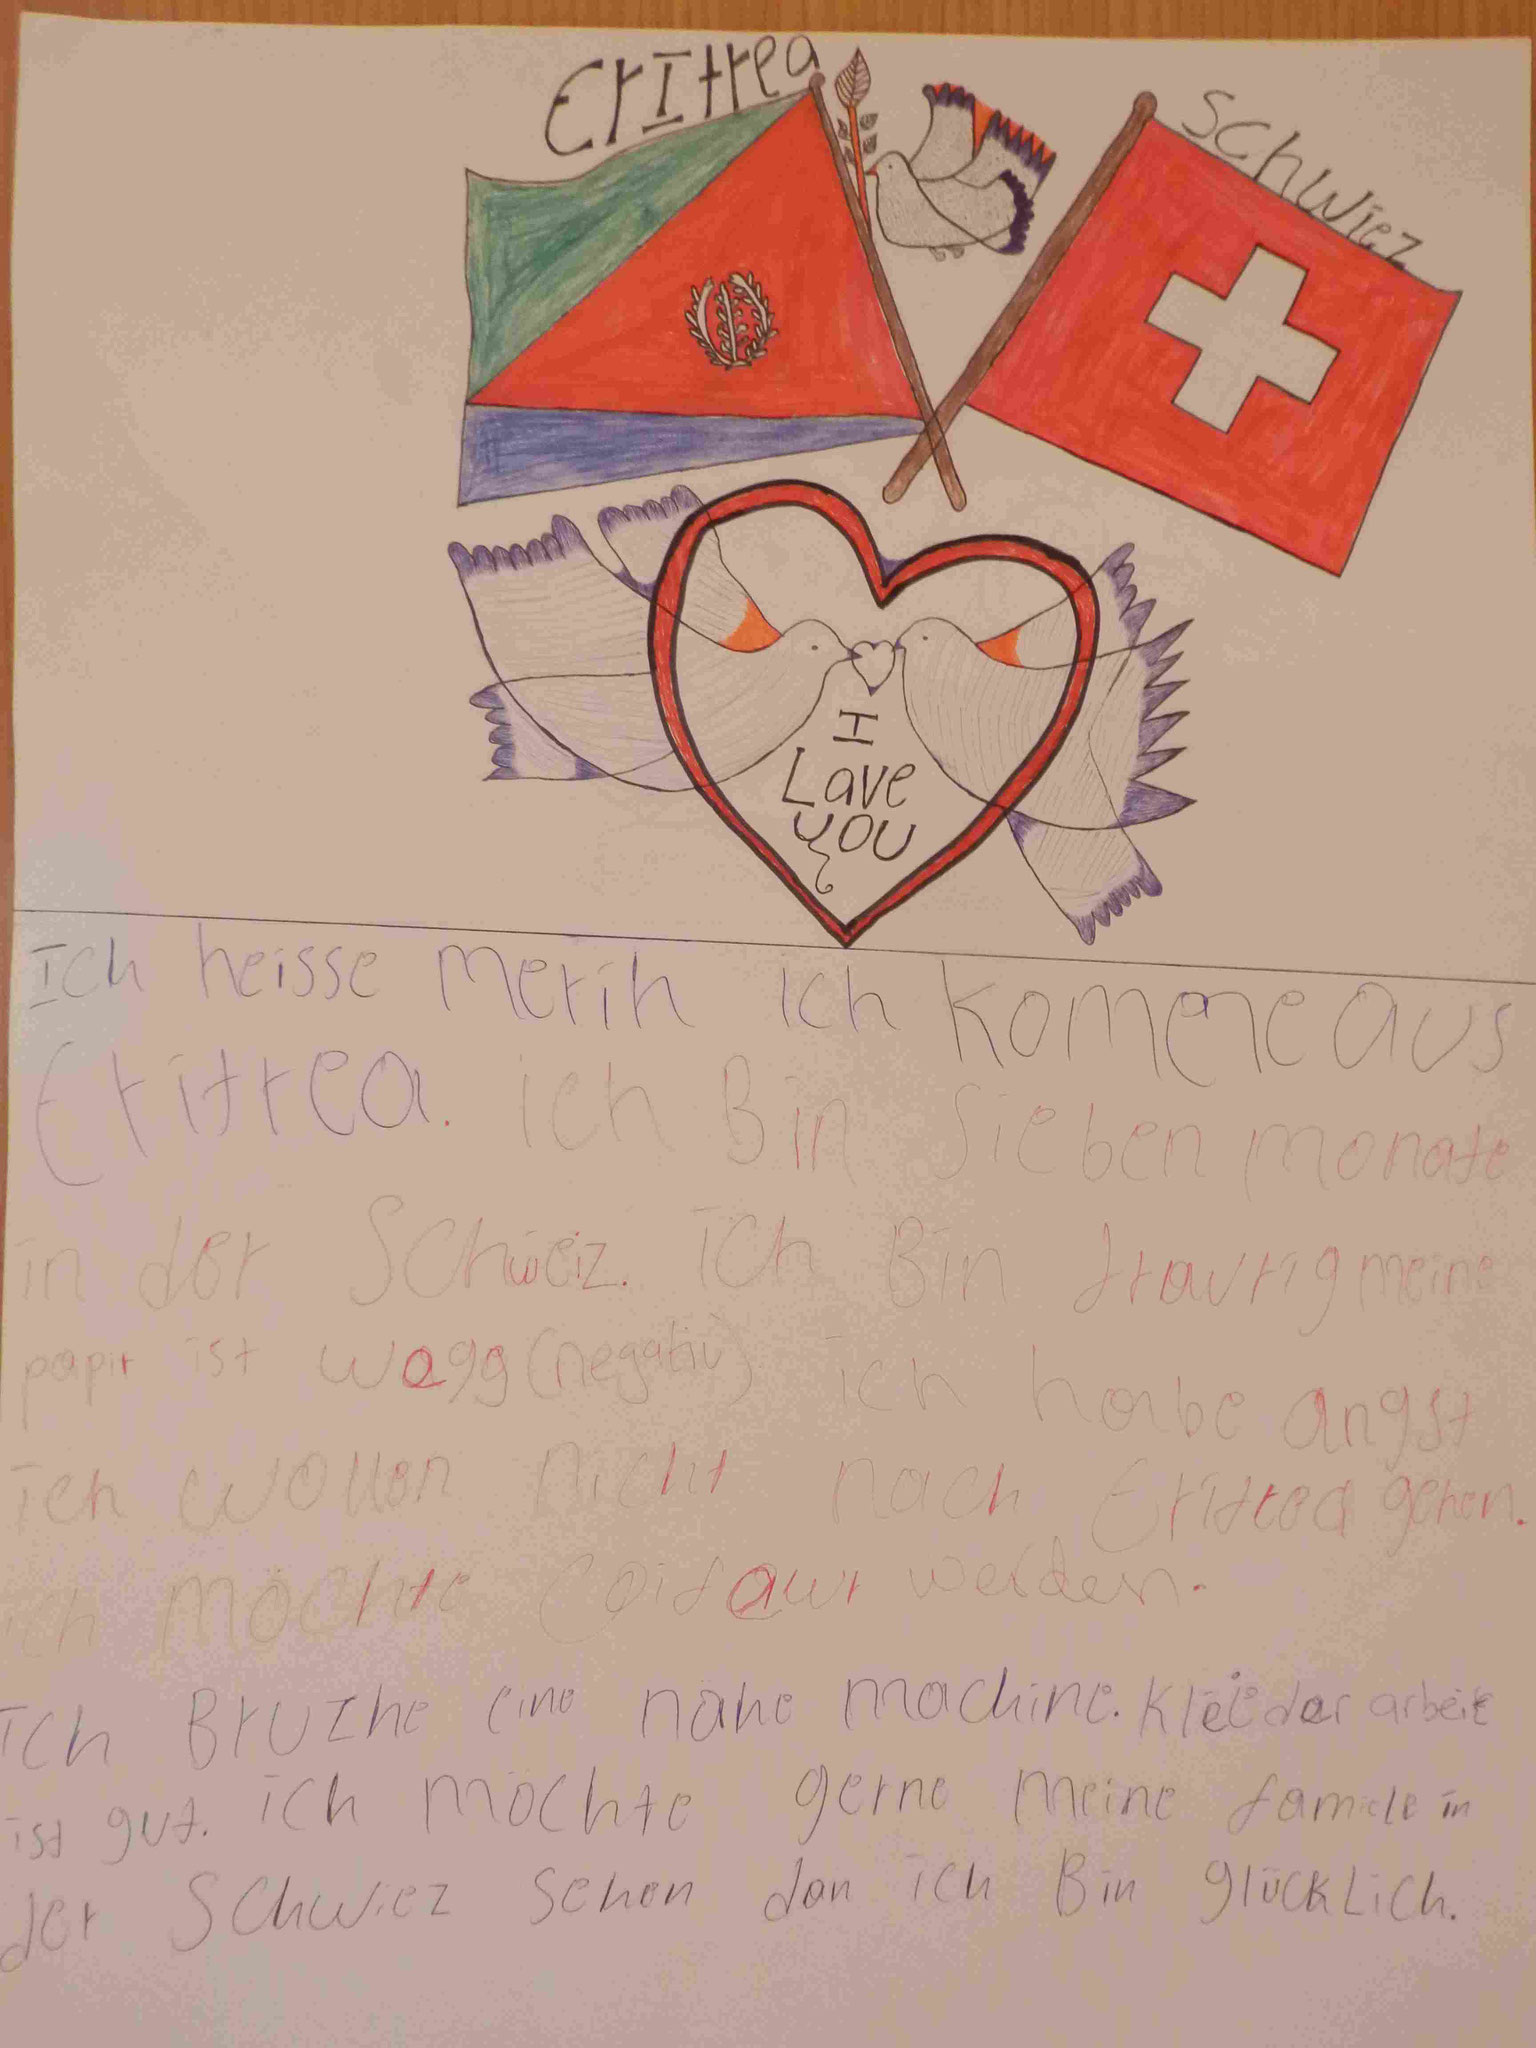 ErItrea
Schwiez
I
Lave
you
Ich heisse merih ich komme aus
Eritrea. ich Bin sieben monate
in der Schweiz. ich Bin traurig meine
papir ist wegg (negativ) ich habe angst
ich wollen nicht nach Eritrea gehen.
ich möchte werden.
ich Bruzhe eine nähe machine. Kleider arbeit
ist gut. ich möchte gerne meine famile in
der Schwiez sehen dan ich Bin glücklich.